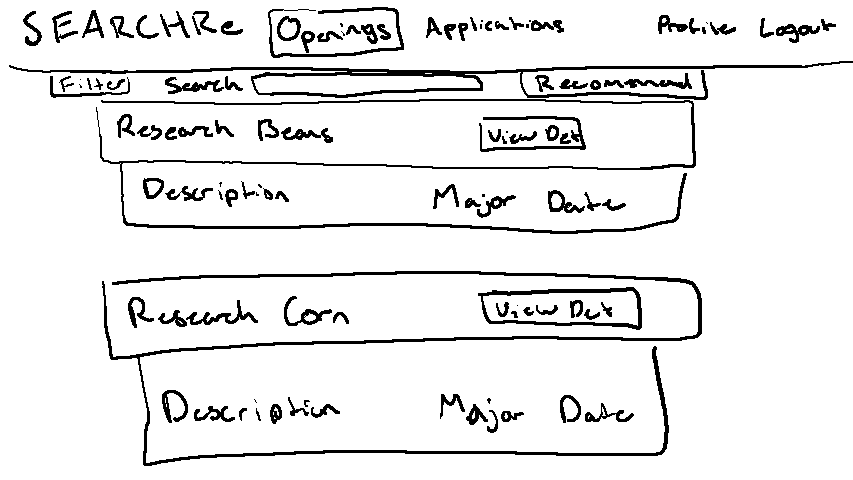 SEARCHRe Openings Applications Profile Logout
Filter Search Recommend
Research Beans View Det
Description Major Date
Research Corn View Det
Description Major Date